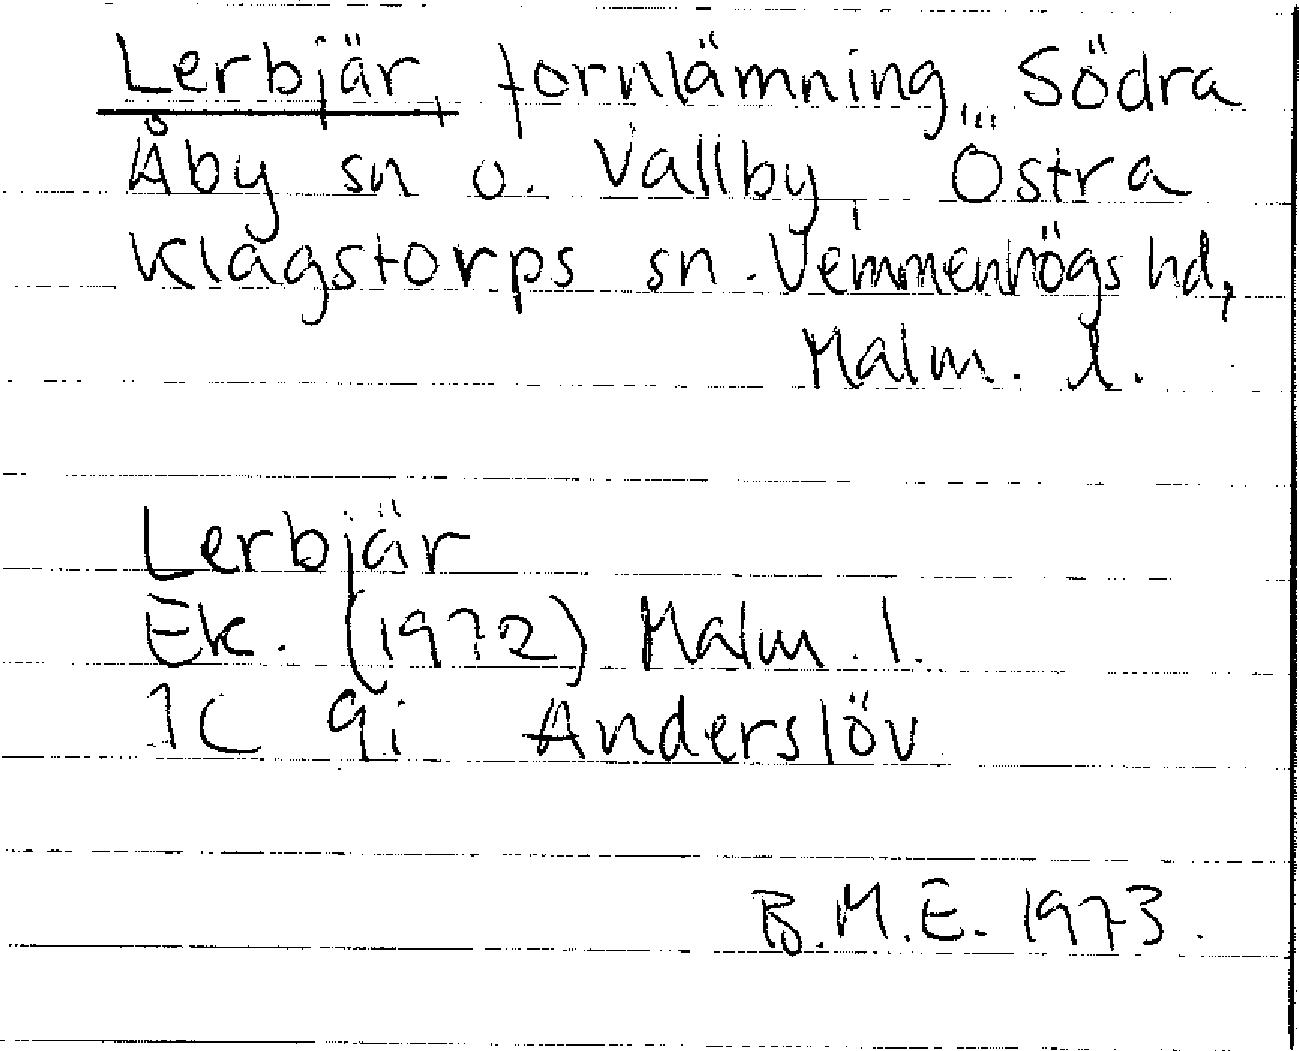 Lerbjär, fornlämning, Södra
Åby sn o. Vallby, Östra
Klagstorps sn. Vemmenhögs hd,
Malm. l.
Lerbjär
Ek. (1972) Malm. l.
1C 9i Anderslöv
B.M.E. 1973.